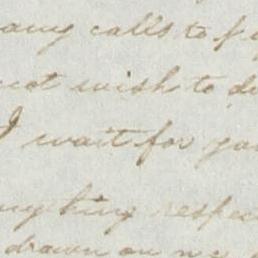 any calls to
not wish to
I wait for you
anything respec
drawn on me